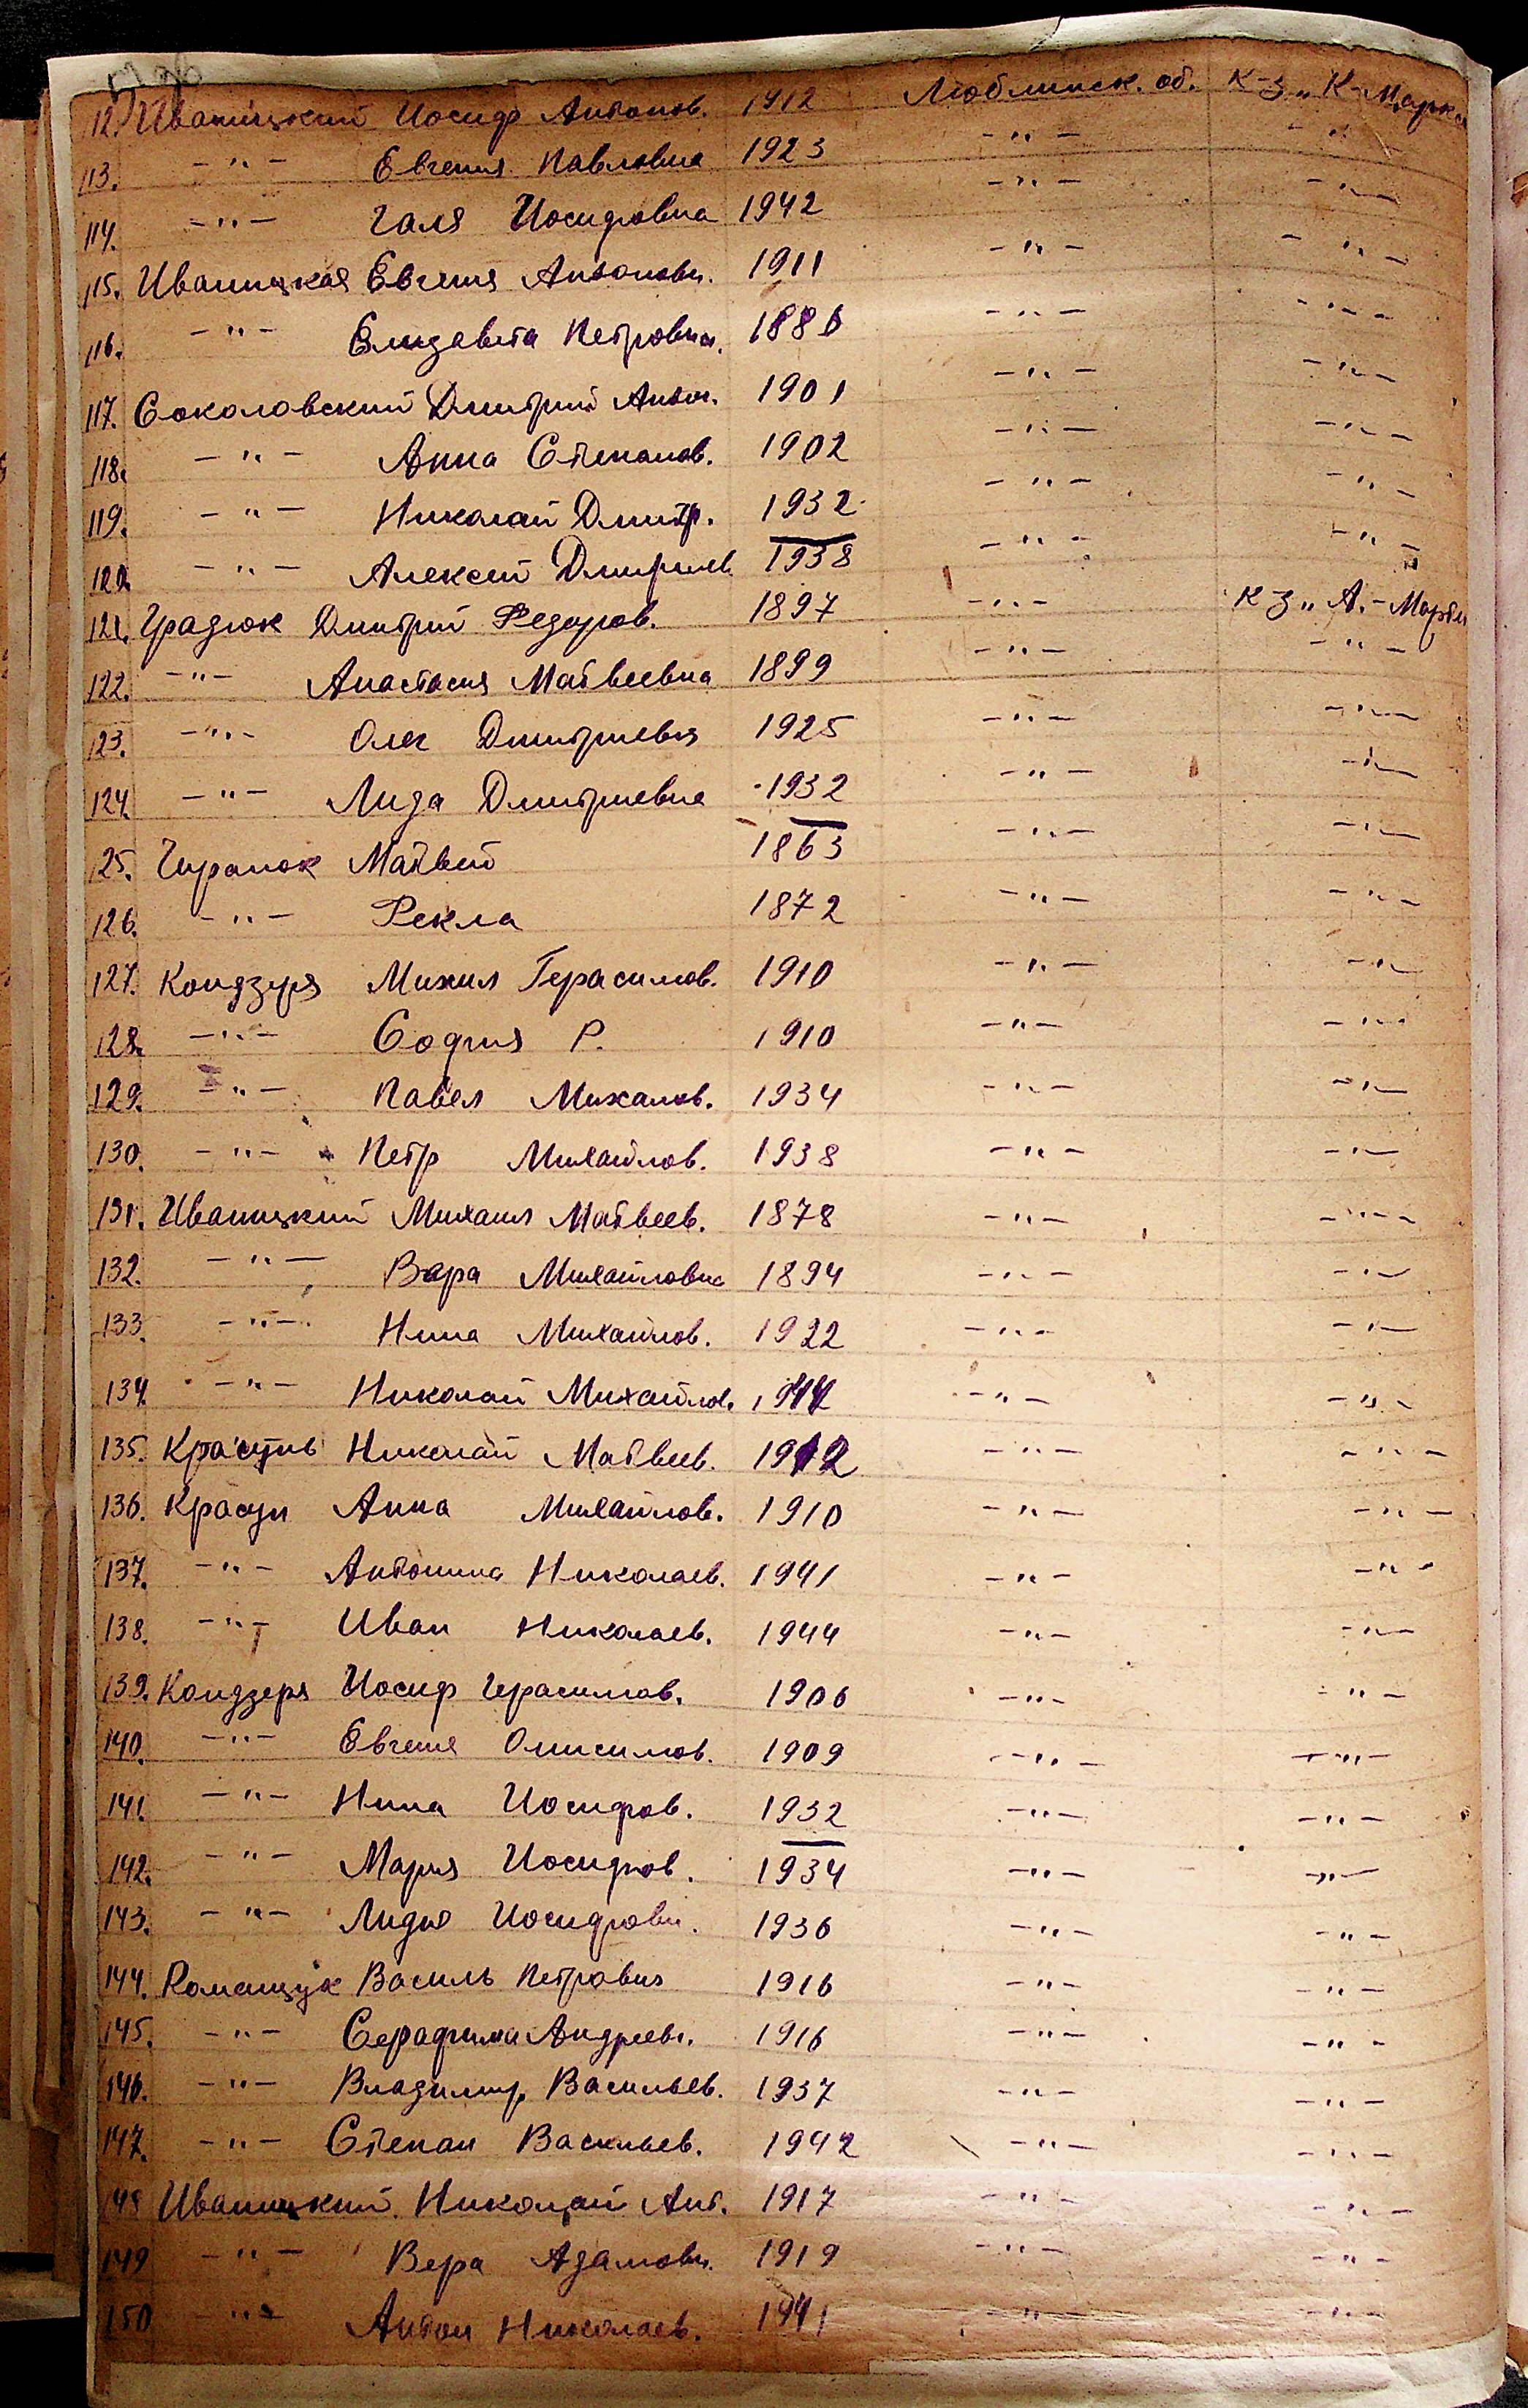 112. Иваницкий Иосиф Антонов. 1912 Люблинск. об. К-з „К-Маркса
113. -"- Евгения Павловна 1923 -"- -"-
114. -"- Галя Иосифовна 1942 -"- -"-
115. Иваницкая Евгения Антоновн. 1911 -"- -"-
116. -"- Елизавета Петровна. 1886 -"- -"-
117. Соколовский Дмитрий Антон. 1901 -"- -"-
118. -"- Анна Степанов. 1902 -"- -"-
119. -"- Николай Дмитр. 1932 -"- -"-
120. -"- Алексей Дмитриев. 1938 -"- -"-
121. Градюк Дмитрий Федоров. 1897 -"- К-з „А.-Марти
122. -"- Анастасия Матвеевна 1899 -"- -"-
123. -"- Олег Дмитриевич 1925 -"- -"-
124. -"- Лида Дмитриевна 1932 -"- -"-
125. Гиранюк Матвей 1863 -"- -"-
126. -"- Фекла 1872 -"- -"-
127. Кондзеря Михил Герасимов. 1910 -"- -"-
128. -"- София Р. 1910 -"- -"-
129. -"- Павел Михалов. 1934 -"- -"-
130. -"- Петр Михайлов. 1938 -"- -"-
131. Иваницкий Михаил Матвеев. 1878 -"- -"-
132. -"- Вара Михайловна 1894 -"- -"-
133. -"- Нина Михайлов. 1922 -"- -"-
134. -"- Николай Михайлов. 1944 -"- -"-
135. Красунь Николай Матвеев. 1912 -"- -"-
136. Красун Анна Михайлов. 1910 -"- -"-
137. -"- Антонина Николаев. 1941 -"- -"-
138. -"- Иван Николаев. 1944 -"- -"-
139. Кондзеря Иосиф Герасимов. 1906 -"- -"-
140. -"- Евгения Онисимов. 1909 -"- -"-
141. -"- Нина Иосифов. 1932 -"- -"-
142. -"- Мария Иосифов. 1934 -"- -"-
143. -"- Лидия Иосифовн. 1936 -"- -"-
144. Романчук Василь Петрович 1916 -"- -"-
145. -"- Серафима Андреевн. 1916 -"- -"-
146. -"- Владимир Васильев. 1937 -"- -"-
147. -"- Степан Васильев. 1942 -"- -"-
148 Иваницкий Николай Ант. 1917 -"- -"-
149 -"- Вера Адамовн. 1919 -"- -"-
150 -"- Антон Николаев. 1941 -"- -"-